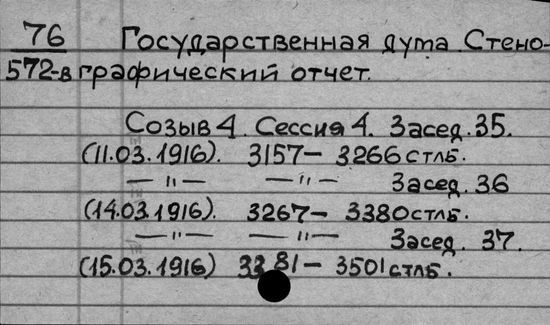 76 Государственная дума. Стено-
572-в графический отчет.
Созыв 4. Сессия 4. Засед. 35.
(11.03.1916). 3157- 3266 стлб.
— " — — " — Засед. 36
(14.03.1916). 3267- 3380 стлб.
— " — — " — Засед. 37.
(15.03.1916) 3381- 3501 стлб.